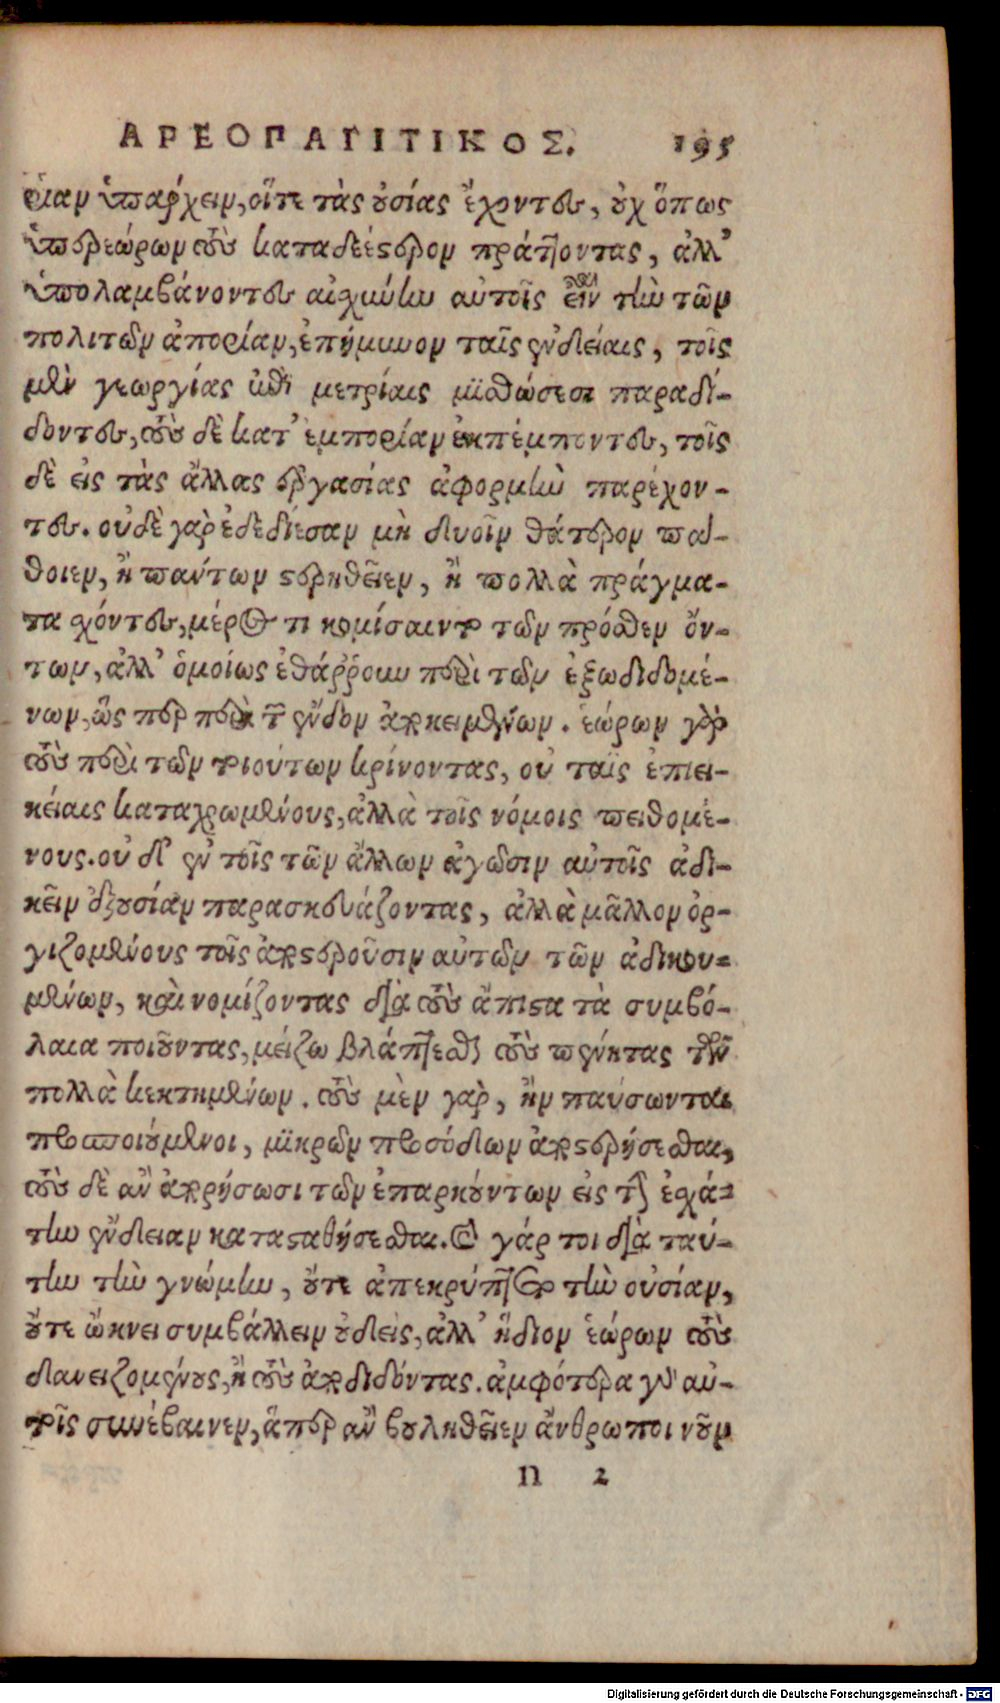 ΑΡΕΟΠΑΓΙΤΙΚΟΣ. 195
ρίαν ὑπάρχειν, οἵ τε τὰς οὐσίας ἔχοντες, οὐχ ὅπως
ὑπερεώρων τοὺς καταδεέστερον πράττοντας, ἀλλ'
ὑπολαμβάνοντες αἰσχύνην αὐτοῖς εἶναι τὴν τῶν
πολιτῶν ἀπορίαν, ἐπήμυνον ταῖς ἐνδείαις, τοῖς
μὲν γεωργίας ἐπὶ μετρίαις μισθώσεσι παραδί-
δοντες, τοὺς δὲ κατ' ἐμπορίαν ἐκπέμποντες, τοῖς
δὲ εἰς τὰς ἄλλας ἐργασίας ἀφορμὴν παρέχον-
τες. οὐδὲ γὰρ ἐδεδίεσαν μὴ δυοῖν θάτερον πά-
θοιεν, ἢ πάντων στερηθεῖεν, ἢ πολλὰ πράγμα-
τα σχόντες, μέρος τι κομίσαιντο τῶν πρόσθεν ὄν-
των, ἀλλ' ὁμοίως ἐθάῤῥουν περὶ τῶν ἐξωδιδομέ-
νων, ὥς περ περὶ τῶν ἔνδον ἀποκειμένων. ἑώρων γὰρ
τοὺς περὶ τῶν τοιούτων κρίνοντας, οὐ ταῖς ἐπιει-
κείαις καταχρωμένους, ἀλλὰ τοῖς νόμοις πειθομέ-
νους. οὐδ' ἐν τοῖς τῶν ἄλλων ἀγῶσιν αὐτοῖς ἀδι-
κεῖν ἐξουσίαν παρασκευάζοντας, ἀλλὰ μᾶλλον ὀρ-
γιζομένους τοῖς ἀποστεροῦσιν αὐτῶν τῶν ἀδικου-
μένων, καὶ νομίζοντας διὰ τοὺς ἄπιστα τὰ συμβό-
λαια ποιοῦντας, μείζω βλάπτεσθαι τοὺς πένητας τῶν
πολλὰ κεκτημένων. τοὺς μὲν γὰρ, ἢν παύσωνται
προϊέμενοι, μικρῶν προσόδων ἀποστερήσεσθαι,
τοὺς δὲ ἂν ἀπορήσωσι τῶν ἐπαρκούντων εἰς τὴν ἐσχά-
την ἔνδειαν καταστήσεσθαι. καὶ γάρ τοι διὰ ταύ-
την τὴν γνώμην, οὔτε ἀπεκρύπτετο τὴν οὐσίαν,
οὔτε ὤκνει συμβάλλειν οὐδεὶς, ἀλλ' ἥδιον ἑώρων τοὺς
δανειζομένους, ἢ τοὺς ἀποδιδόντας. ἀμφότερα γὰρ αὐ-
τοῖς συνέβαινεν, ἅπερ ἂν βουληθεῖεν ἄνθρωποι νοῦν
n 2
Digitalisierung gefördert durch die Deutsche Forschungsgemeinschaft - DFG